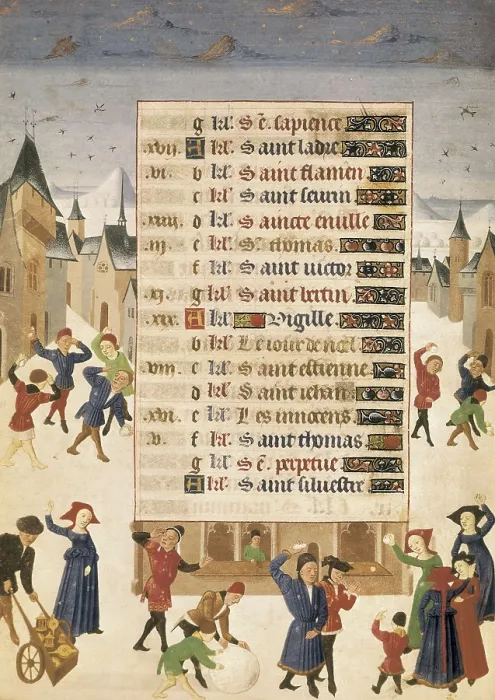 g kł. S e. sapience
.xvii. A kł. Saint ladre
.vi. b kł. Saint flamen
c kł. Saint seurin
.xiiii. d kł. Saincte emille
.iii. e kł. S. thomas.
f kł. Saint victor
.xi. g kł. Saint bertin
.xix. A kł. Vigille.
b kł. Le iour de noel
.viii. c kł. Saint estienne
d kł. Saint iehan
.xvi. e kł. Les innocens.
.v. f kł. Saint thomas
g kł. S e. perpetue
A kł. Saint siluestre